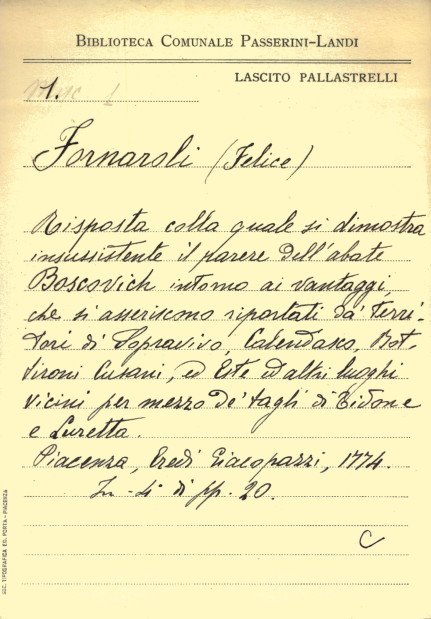 BIBLIOTECA COMUNALE PASSERINI-LANDI
LASCITO PALLASTRELLI
1.
Fornaroli (Felice)
Risposta colla quale si dimostra
insussistente il parere dell'abate
Boscovich intorno ai vantaggi,
che si asseriscono riportati da' terri-
tori di Sopravivo, Calendasco, Bot-
tironi Cusani, ed Este ed altri luoghi
vicini per mezzo de' tagli di Tidone
e Luretta.
Piacenza, Eredi Giacopazzi, 1774.
In-4 di pp. 20.
C
SOC. TIPOGRAFICA ED. PORTA - PIACENZA